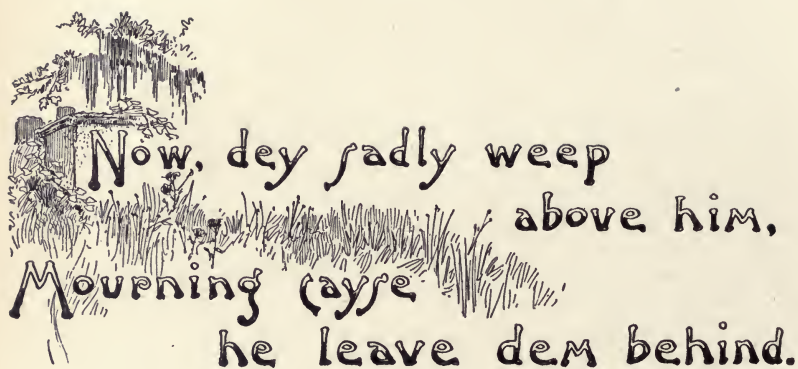 Now, dey sadly weep
above him,
Mourning cayse
he leave dem behind.